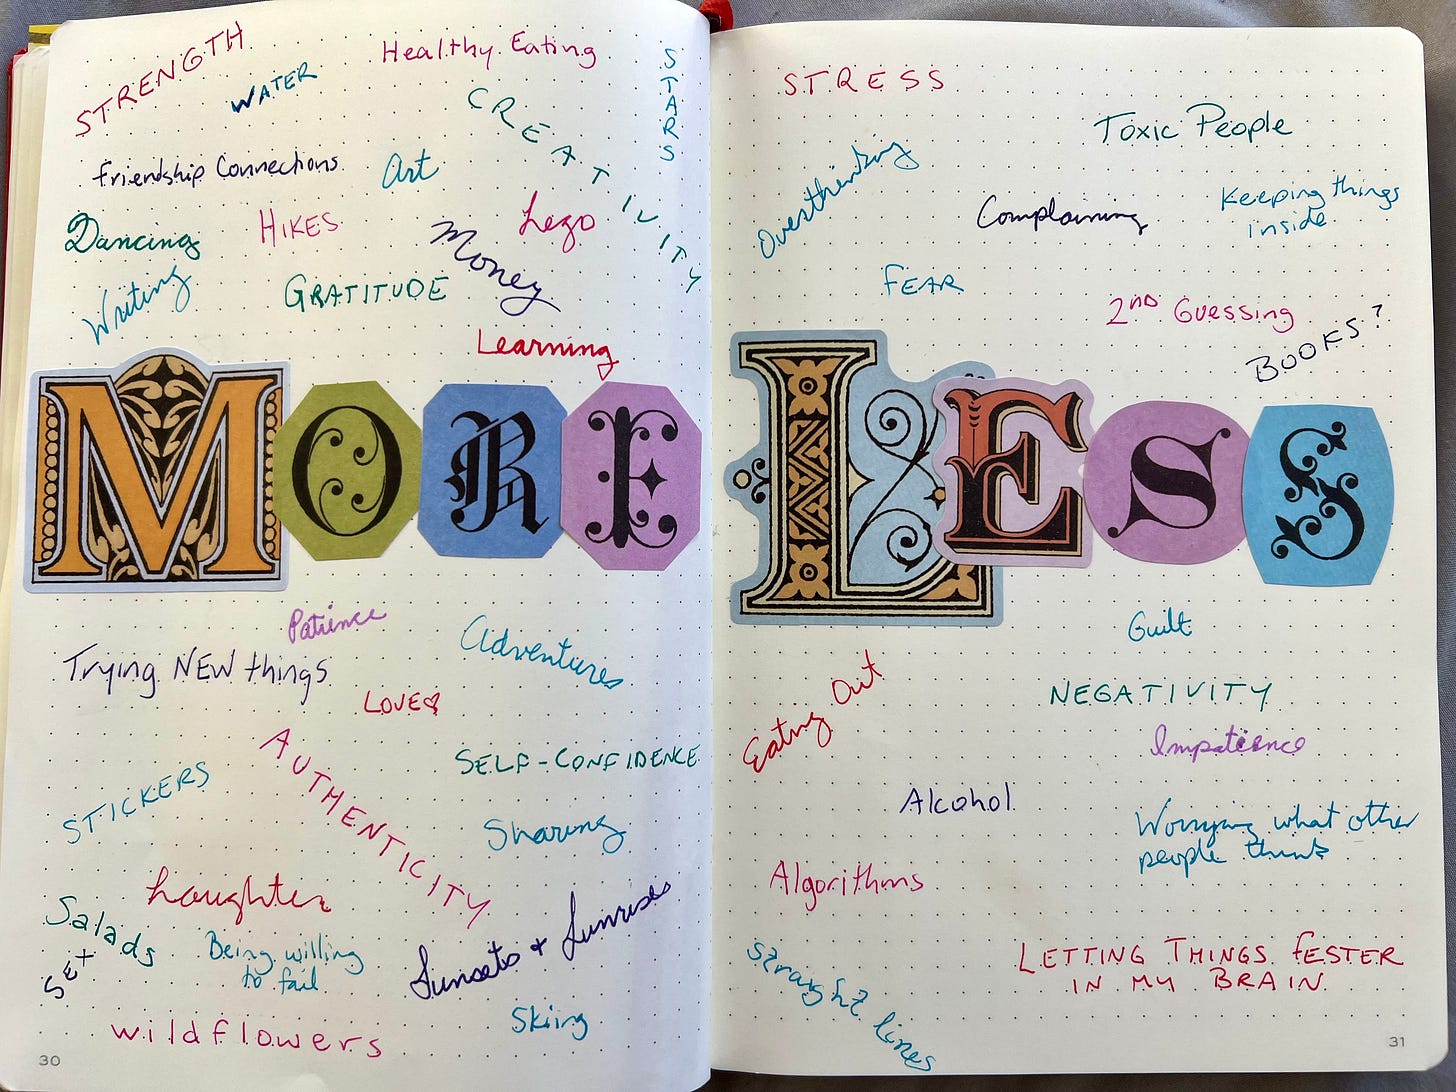 STRENGTH
WATER
Healthy Eating
STARS
CREATIVITY
Friendship Connections
Art
Dancing
HIKES
Lego
Money
Writing
GRATITUDE
Learning
MORE
Patience
Adventures
Trying NEW things
LOVE
AUTHENTICITY
SELF-CONFIDENCE
STICKERS
Sharing
Laughter
Salads
SEX
Being willing
to fail
Sunsets + Sunrises
Skiing
wildflowers
30
STRESS
Toxic People
Overthinking
Complaining
Keeping things
inside
FEAR
2ND Guessing
BOOKS?
LESS
Guilt
Eating Out
NEGATIVITY
Impatience
Alcohol
Worrying what other
people think
Algorithms
Straight lines
LETTING THINGS FESTER
IN MY BRAIN
31